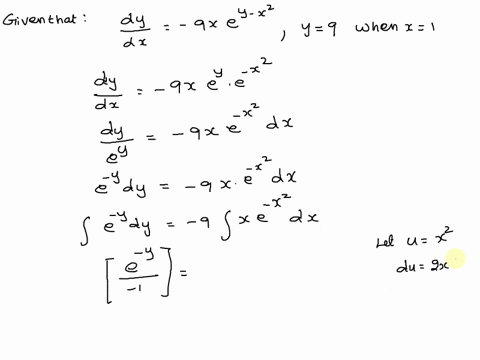 Given that : dy/dx = -9x e^{y-x^2} , y=9 when x=1
dy/dx = -9x e^y . e^{-x^2}
dy/e^y = -9x e^{-x^2} dx
e^{-y} dy = -9x . e^{-x^2} dx
∫ e^{-y} dy = -9 ∫ x e^{-x^2} dx
[ e^{-y}/-1 ] =
Let u = x^2
du = 2x